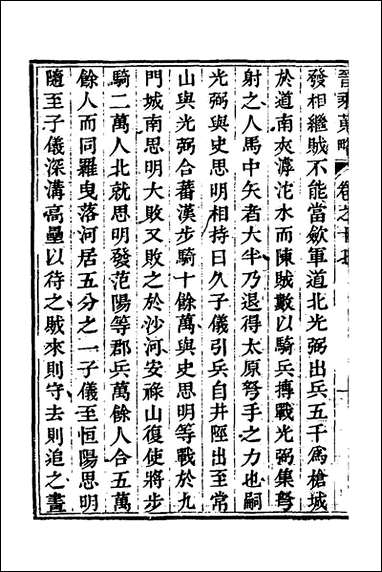 晉乘蒐略 卷之十五
發相繼賊不能當斂軍道北光弼出兵五千爲槍城
於道南夾滹沱水而陳賊數以騎兵搏戰光弼集弩
射之人馬中矢者大半乃退得太原弩手之力也嗣
光弼與史思明相持日久子儀引兵自井陘出至常
山與光弼合蕃漢步騎十餘萬與史思明等戰於九
門城南思明大敗又敗之於沙河安祿山復使將步
騎二萬人北就思明發范陽等郡兵萬餘人合五萬
餘人而同羅曳落河居五分之一子儀至恒陽思明
隨至子儀深溝高壘以待之賊來則守去則追之晝